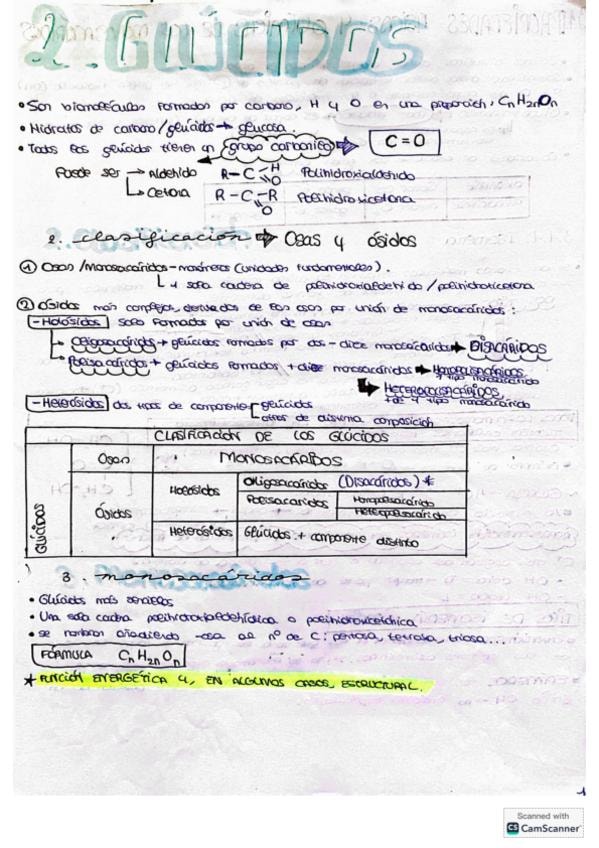 2. GLÚCIDOS
• Son biomoléculas formados por carbono, H y O en una proporción: CnH2nOn
• Hidratos de carbono/glúcidos → glucosa.
• Todos los glúcidos tienen un grupo carbonilo ⇒ C=O
Puede ser → Aldehído R-C H O Polihidroxialdehído
↳ Cetona R-C-R O Polihidroxicetona
2. clasificación ⇒ Osas y ósidos
① Osas/Monosacáridos - monómeros (unidades fundamentales).
↳ 1 sola cadena de polihidroxialdehído/polihidroxicetona
② Ósidos más complejos, derivados de las osas por unión de monosacáridos:
- Holósidos solo formados por unión de osas
Oligosacáridos → glúcidos formados por dos - diez monosacáridos → DISACÁRIDOS
Polisacáridos → glúcidos formados + diez monosacáridos → HOMOPOLISACÁRIDOS
1 tipo monosacárido
→ HETEROPOLISACÁRIDOS
+ de 1 tipo monosacárido
- Heterósidos dos tipos de componente glúcidos
otros de distinta composición
CLASIFICACIÓN DE LOS GLÚCIDOS
GLÚCIDOS
Osas MONOSACÁRIDOS
Ósidos Holósidos Oligosacáridos (Disacáridos) *
Polisacáridos Homopolisacárido
Heteropolisacárido
Heterósidos Glúcidos + componente distinto
3. monosacáridos
• Glúcidos más sencillos
• Una sola cadena polihidroxialdehídica o polihidroxicetónica
• se nombran añadiendo -osa al nº de C: pentosa, tetrosa, triosa...
FÓRMULA CnH2nOn
* FUNCIÓN ENERGÉTICA Y, EN ALGUNOS CASOS, ESTRUCTURAL.
1
Scanned with
CS CamScanner